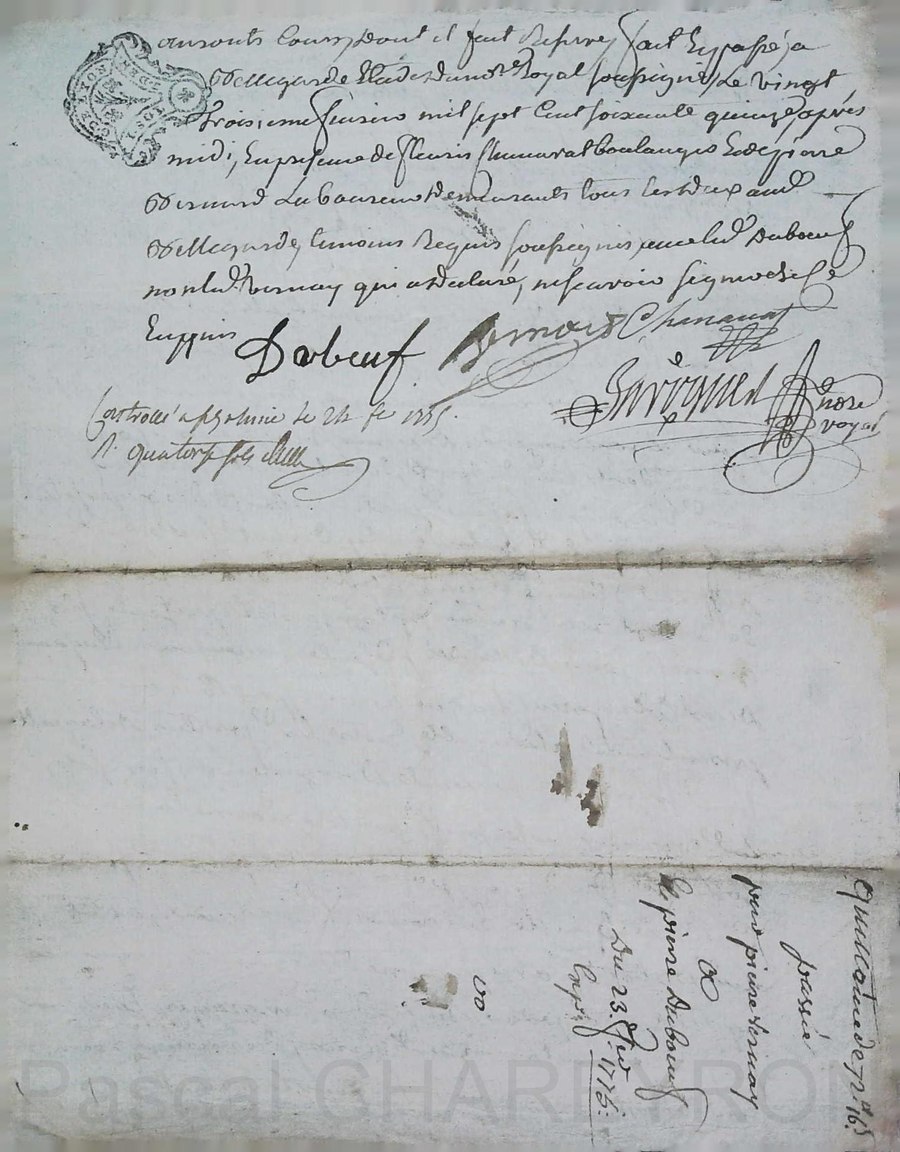 en sont Cours, Dont il fait Reserve, fait Et passé a
Bellegarde Etude du not.re Royal soussigné, Le vingt
troisieme fevrier mil sept Cent soixante quinze, après
midi, En presence de fleuris Chanavat boulanger Et de pierre
Bernard Laboureur demeurants tous les deux aud.
Bellegarde, temoins Requis soussignés avec led. Duboeuf
non led. Vernay qui a declaré, ne scavoir signer de Ce
Enquis
Duboeuf Bernard Chanavat
not.re
royal
Controllé a le 24 fe. 1775.
R. quatorze sols
Quittance de 72.# 16.s
passée
par pierre Vernay
a
S.r pierre Duboeuf
Du 23. fev.r 1775.
Exp.é
Pascal CHAREYRON